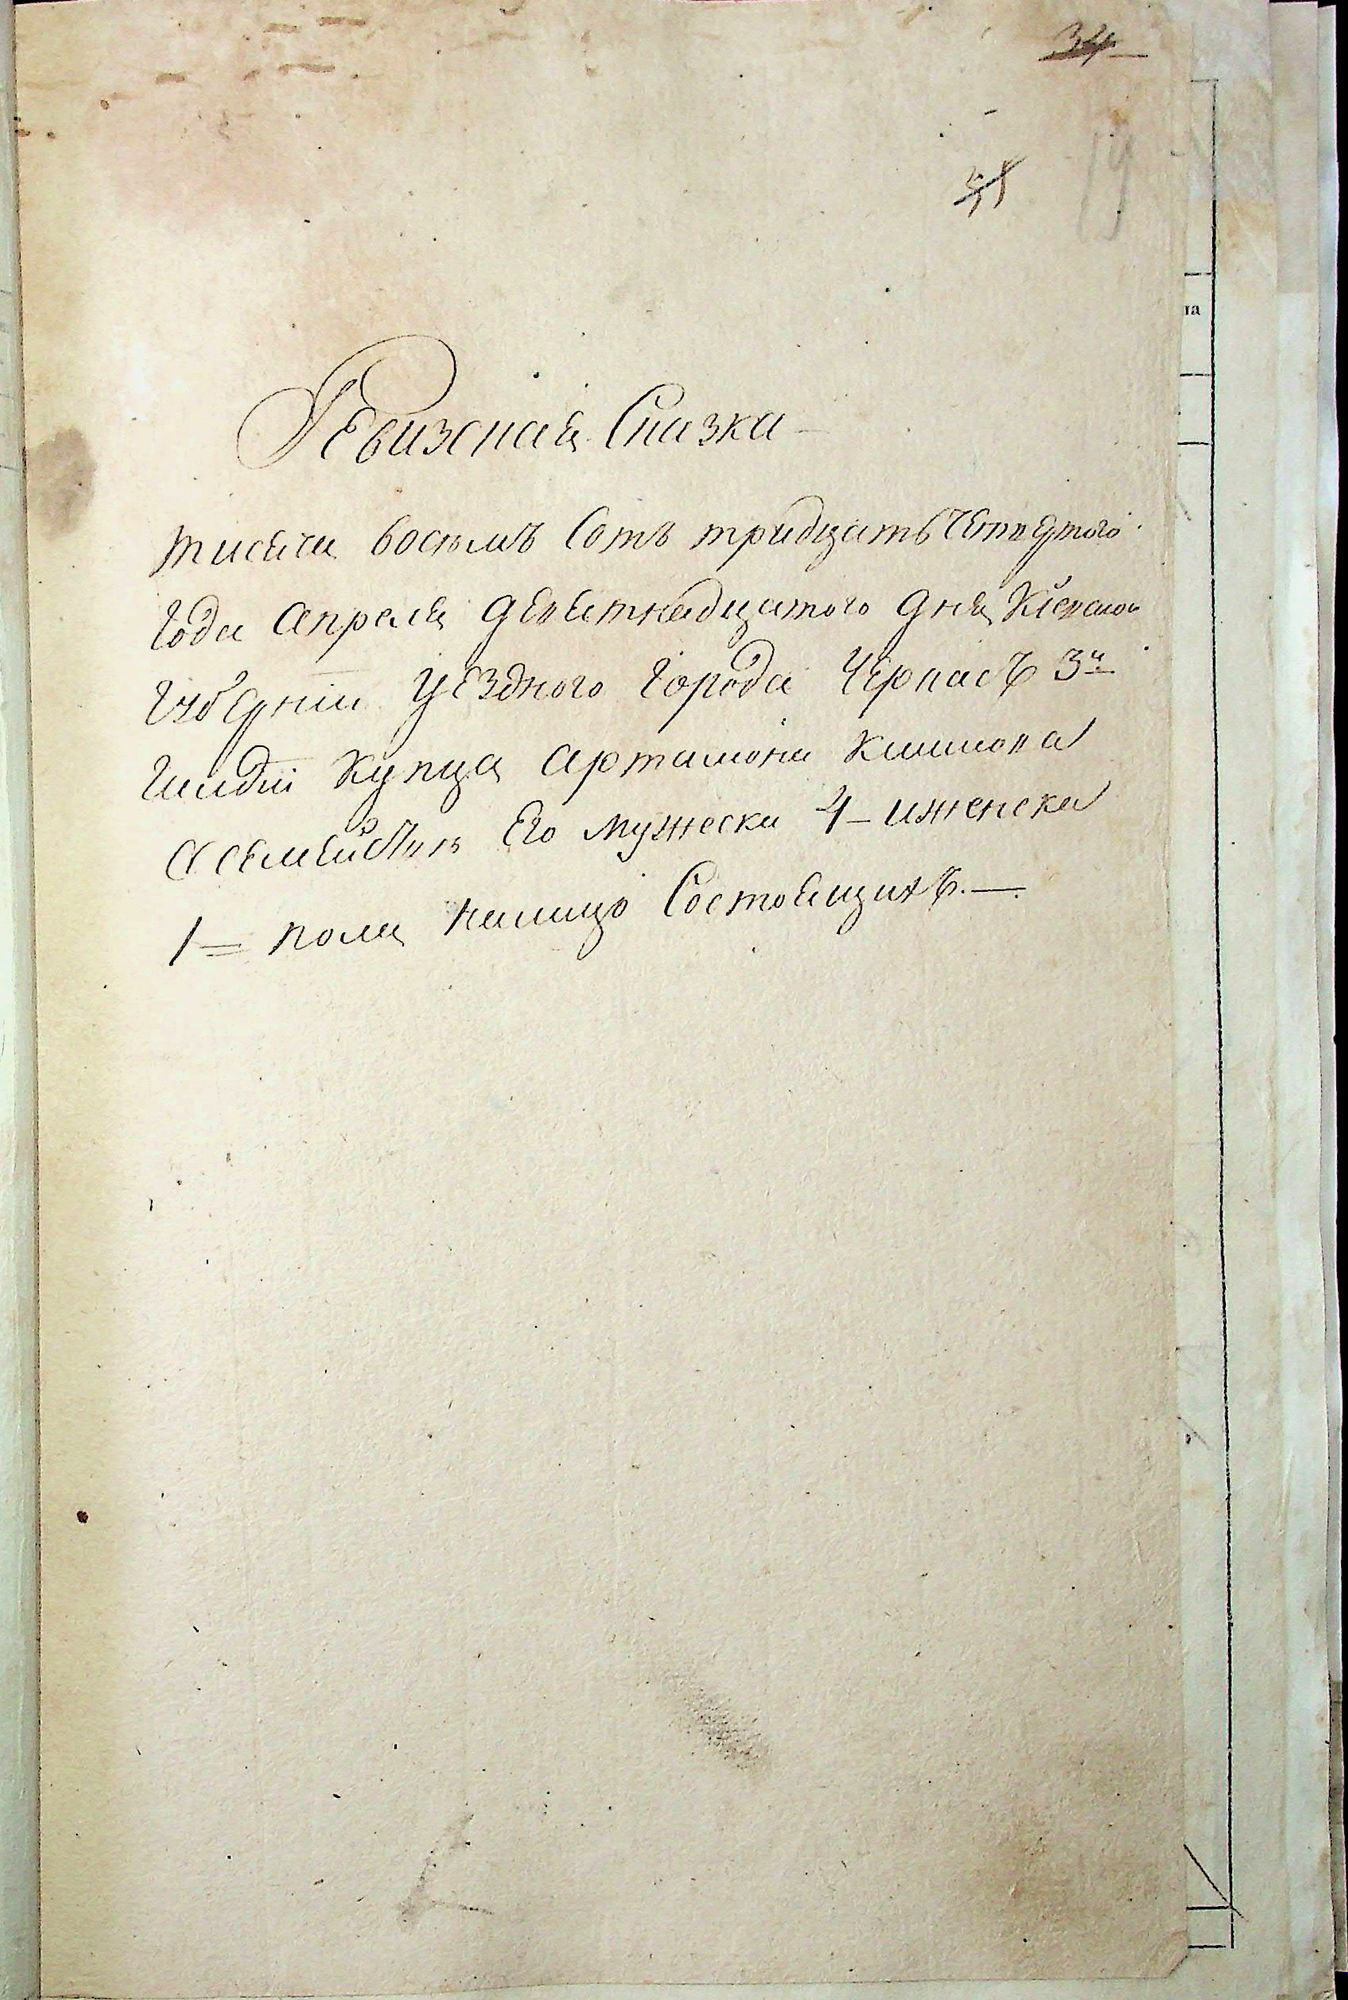 34
19
Ревизская Сказка
тисяча восемъ Сотъ тридцать Четвертого
Года апреля девятнадцатого дня Киевской
Губернии Уездного Города Черкасъ 3й
Гилдии Купца Артамона
Его мужеска 4 – иженска
1 = пола налицо Состоящихъ. —